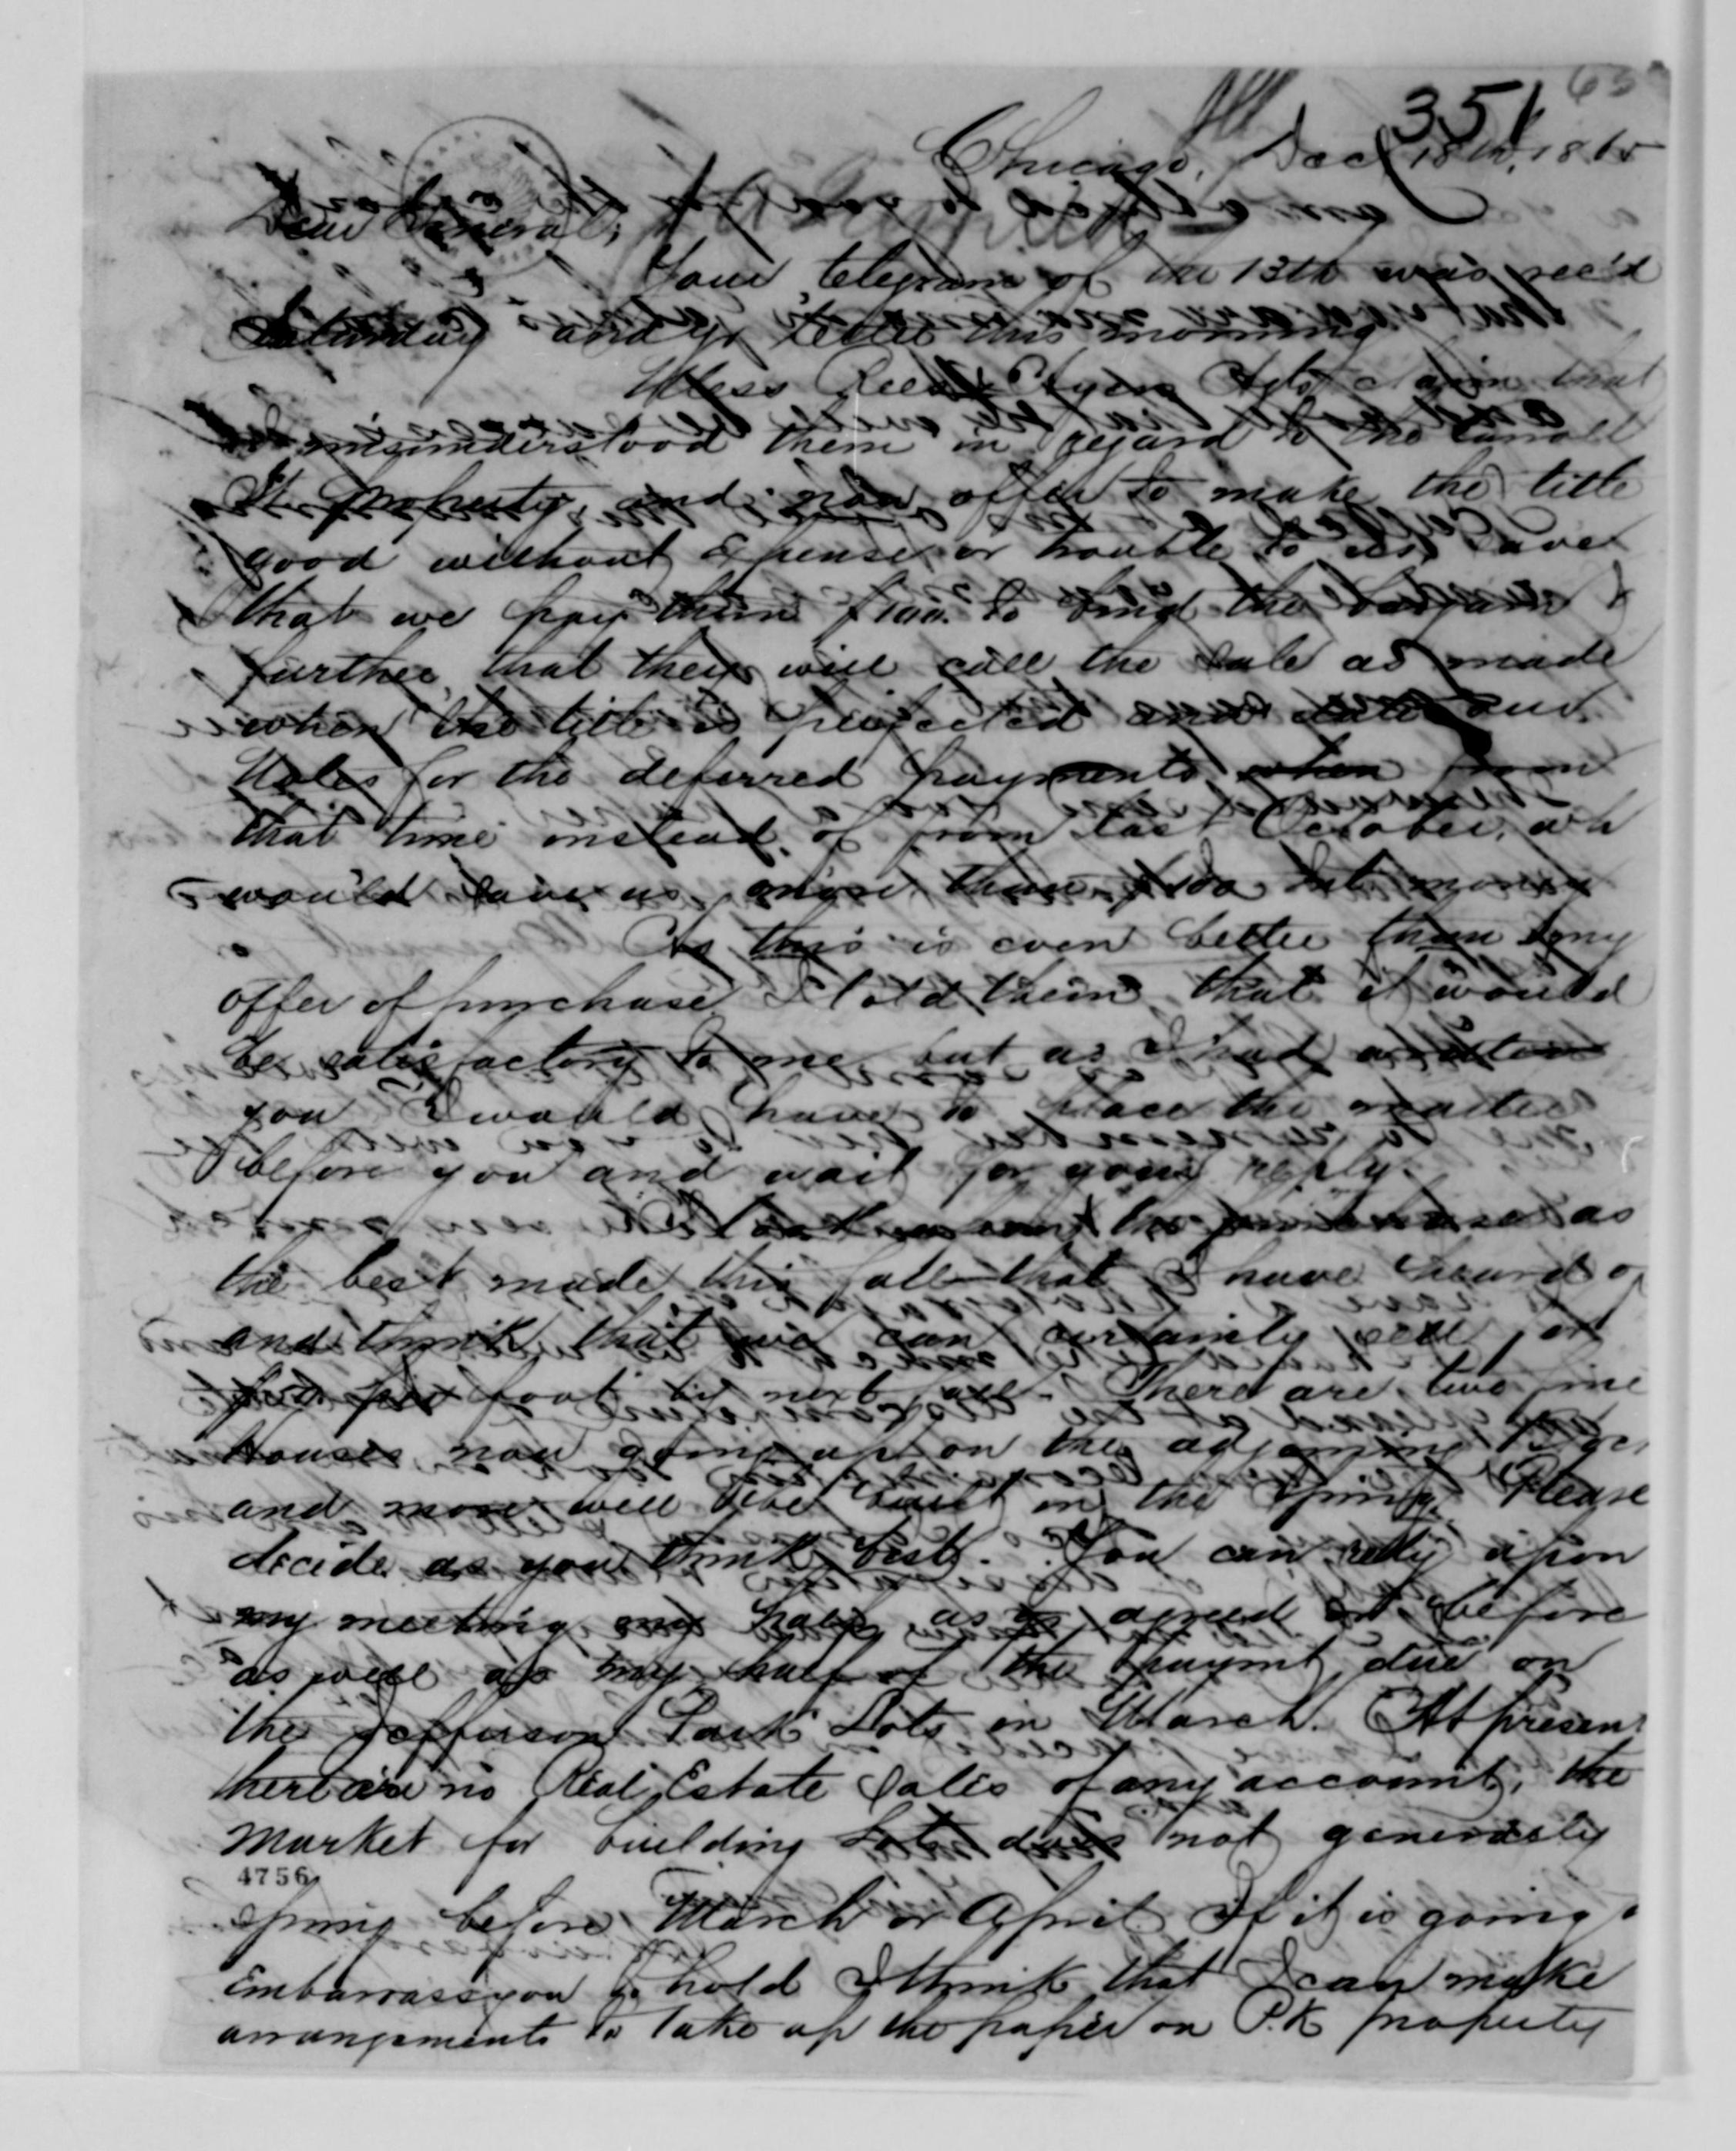 351
65
Chicago, Dec 18th, 1865
Dear General;
Your telegram of the 13th was rec'd
Saturday and yr letter this morning
Mess Rees & Ayers Agts claim that
I misunderstood them in regard to the Carroll
St. property, and now offer to make the title
good without expense or trouble to us, save
that we pay them $100. to bind the bargain &
further, that they will call the sale as made
when the title is perfected and date our
Notes for the deferred payments from
that time instead of from last October, wh
would save us more than $100 Int money
As this is even better than my
offer of purchase I told them that it would
be satisfactory to me, but as I had written
you I would have to place the matter
before you and wait for your reply.
I look upon the purchase as
the best made this fall that I have heard of
and think that we can certainly sell for
per foot by next fall. There are two fine
houses now going up on the adjoining
and more will be built in the Spring. Please
decide as you think best. You can rely upon
my meeting my half as agreed before
as well as my half of the paymt due on
the Jefferson Park Lots in March. At present
there are no Real Estate Sales of any account, the
market for building Lots does not generally
4756
spring before March or April. If it is going to
Embarrass you to hold I think that I can make
arrangements to take up the paper on P.K property